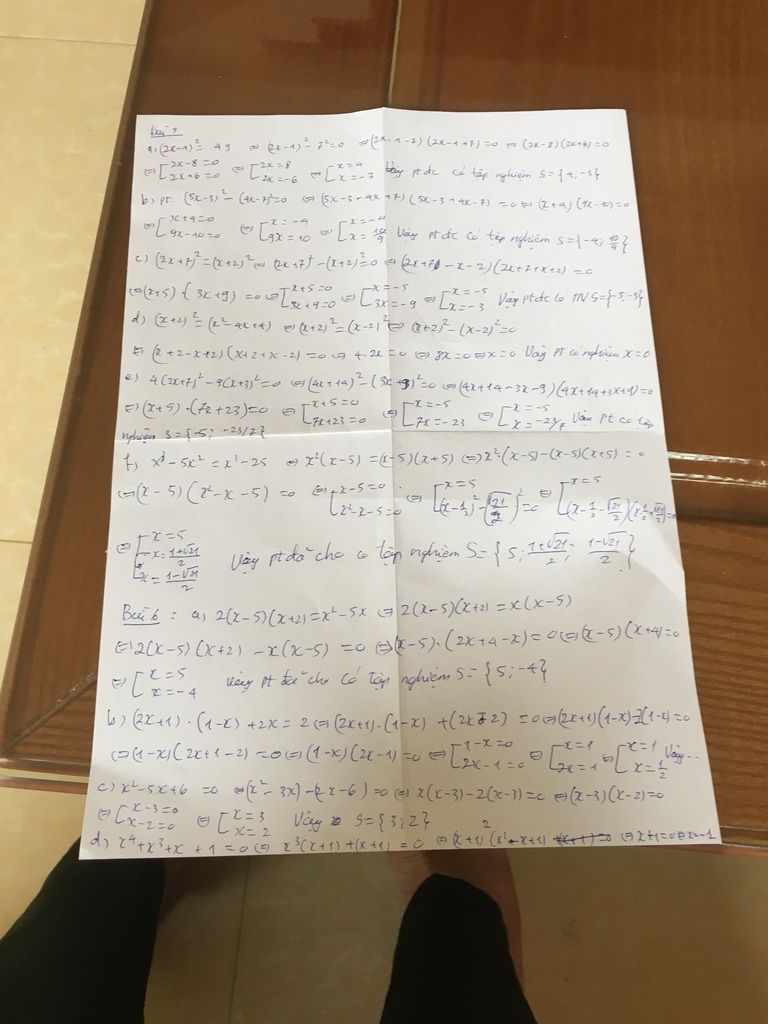 Bài 5
a) (2x-1)² = 49 ⇔ (2x-1)² - 7² = 0 ⇔ (2x-1-7)(2x-1+7) = 0 ⇔ (2x-8)(2x+6) = 0
⇔ [2x-8=0 2x+6=0 ⇔ [2x=8 2x=-6 ⇔ [x=4 x=-3 Vậy pt đc có tập nghiệm S={4;-3}
b) PT: (5x-3)² - (4x-7)² = 0 ⇔ (5x-3-4x+7)(5x-3+4x-7) = 0 ⇔ (x+4)(9x-10) = 0
⇔ [x+4=0 9x-10=0 ⇔ [x=-4 9x=10 ⇔ [x=-4 x=10/9 Vậy pt đc có tập nghiệm S={-4; 10/9}
c) (2x+7)² = (x+2)² ⇔ (2x+7)² - (x+2)² = 0 ⇔ (2x+7-x-2)(2x+7+x+2) = 0
⇔ (x+5)(3x+9) = 0 ⇔ [x+5=0 3x+9=0 ⇔ [x=-5 3x=-9 ⇔ [x=-5 x=-3 Vậy pt đc có TN S={-5;-3}
d) (x+2)² = (x²-4x+4) ⇔ (x+2)² = (x-2)² ⇔ (x+2)² - (x-2)² = 0
⇔ (x+2-x+2)(x+2+x-2) = 0 ⇔ 4.2x = 0 ⇔ 8x = 0 ⇔ x = 0 Vậy PT có nghiệm x = 0
e) 4(2x+7)² - 9(x+3)² = 0 ⇔ (4x+14)² - (3x+9)² = 0 ⇔ (4x+14-3x-9)(4x+14+3x+9) = 0
⇔ (x+5).(7x+23) = 0 ⇔ [x+5=0 7x+23=0 ⇔ [x=-5 7x=-23 ⇔ [x=-5 x=-23/7 Vậy PT có tập
nghiệm S={-5; -23/2}
f) x³ - 5x² = x² - 25 ⇔ x²(x-5) = (x-5)(x+5) ⇔ x²(x-5) - (x-5)(x+5) = 0
⇔ (x-5)(x²-x-5) = 0 ⇔ [x-5=0 x²-x-5=0 ⇔ [x=5 (x-1/2)² - (√21/2)² = 0 ⇔ [x=5 (x-1/2-√21/2)(x-1/2+√21/2)=0
⇔ [x=5 x=1+√21/2 x=1-√21/2 Vậy pt đã cho có tập nghiệm S={5; 1+√21/2; 1-√21/2}
Bài 6: a) 2(x-5)(x+2) = x²-5x ⇔ 2(x-5)(x+2) = x(x-5)
⇔ 2(x-5)(x+2) - x(x-5) = 0 ⇔ (x-5).(2x+4-x) = 0 ⇔ (x-5)(x+4) = 0
⇔ [x=5 x=-4 Vậy pt đã cho có tập nghiệm S={5;-4}
b) (2x+1).(1-x)+2x = 2 ⇔ (2x+1).(1-x)+(2x-2) = 0 ⇔ (2x+1)(1-x)-2(1-x) = 0
⇔ (1-x)(2x+1-2) = 0 ⇔ (1-x)(2x-1) = 0 ⇔ [1-x=0 2x-1=0 ⇔ [x=1 2x=1 ⇔ [x=1 x=1/2 Vậy...
c) x²-5x+6 = 0 ⇔ (x²-3x)-(2x-6) = 0 ⇔ x(x-3)-2(x-3) = 0 ⇔ (x-3)(x-2) = 0
⇔ [x-3=0 x-2=0 ⇔ [x=3 x=2 Vậy S={3;2}
d) x⁴+x³+x+1 = 0 ⇔ x³(x+1)+(x+1) = 0 ⇔ (x+1)²(x²-x+1) = 0 ⇔ x+1=0 ⇔ x=-1